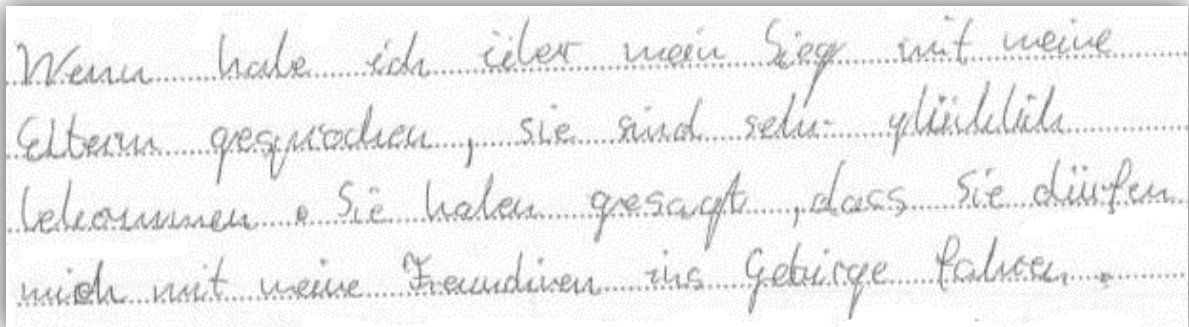 Wenn habe ich über mein Sieg mit meine
Eltern gesprochen, sie sind sehr glücklich
bekommen. Sie haben gesagt, dass sie dürfen
mich mit meine Freundinen ins Gebirge fahren.